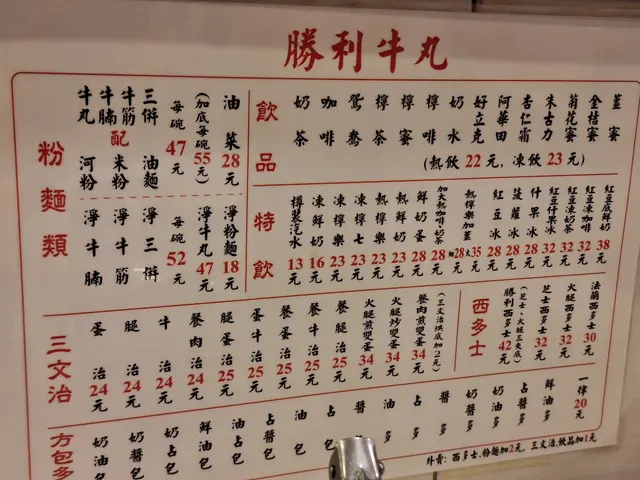 勝利牛丸
粉麵類
牛丸
牛腩
牛筋
三併
配
河粉
米粉
油麵
每碗47元
(加底每碗55元)
油菜28元
淨牛腩
淨牛筋
淨三併
每碗52元
淨牛丸47元
淨粉麵18元
飲品
奶茶
咖啡
鴛鴦
檸茶
檸蜜
檸啡
奶水
好立克
阿華田
杏仁霜
朱古力
菊花蜜
金桔蜜
薑蜜
(熱飲22元，凍飲23元)
特飲
樽裝汽水13元
凍鮮奶16元
凍檸樂23元
凍檸七23元
熱檸樂23元
熱鮮奶23元
鮮奶蛋28元
加大熱咖啡·奶茶28元
熱檸樂加薑 細28大35元
紅豆冰28元
菠蘿冰28元
什果冰28元
紅豆什果冰32元
紅豆凍奶茶32元
紅豆凍咖啡32元
紅豆底鮮奶38元
三文治
蛋治24元
腿治24元
牛治24元
餐肉治24元
腿蛋治25元
蛋牛治25元
餐蛋治25元
餐牛治25元
腿蛋治25元
火腿煎雙蛋34元
火腿炒雙蛋34元
餐肉煎雙蛋34元
(三文治烘底加2元)
西多士
勝利西多士42元
(芝士、火腿三夾底)
芝士西多士32元
火腿西多士32元
法蘭西多士30元
方包多
奶油包
奶醬包
奶占包
鮮油包
油占包
占醬包
油包
占
醬
油多
占多
醬多
奶醬多
奶油多
占醬多
鮮油多
一律20元
外賣：西多士、粉麵加2元，三文治、飲品加1元